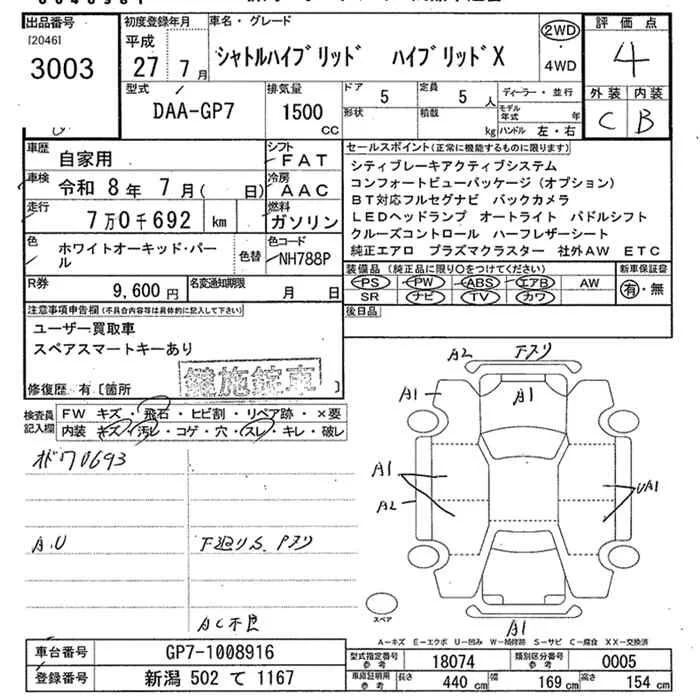 出品番号 初度登録年月 車名・グレード 評価点
[2046]
3003
平成
27 7 月
シャトルハイブリッド ハイブリッドX
2WD
・
4WD
4
外装 内装
C B
型式 排気量 ドア 定員 ディーラー・並行
DAA-GP7 1500 CC 5 5 人
形状 積載 kg モデル年式 年
ハンドル 左・右
車歴 自家用 シフト FAT
車検 令和 8年 7月( 日) 冷房 AAC
走行 7万0千692 km 燃料 ガソリン
色 ホワイトオーキッド・パール 色替 色コード NH788P
R券 9,600円 名変通知期限 月 日
セールスポイント(正常に機能するものに限ります)
シティブレーキアクティブシステム
コンフォートビューパッケージ(オプション)
BT対応フルセグナビ バックカメラ
LEDヘッドランプ オートライト パドルシフト
クルーズコントロール ハーフレザーシート
純正エアロ プラズマクラスター 社外AW ETC
装備品(純正品に限り○をつけてください) 新車保証書
PS PW ABS エアB AW 有・無
SR ナビ TV カワ
後日品
注意事項申告欄(不具合内容等は具体的に記入して下さい)
ユーザー買取車
スペアスマートキーあり
修復歴 有[箇所 ]
鍵施錠車
検査員記入欄
FW キズ・飛石・ヒビ割・リペア跡・×要
内装 キズ・汚レ・コゲ・穴・スレ・キレ・破レ
70693
A.U
下廻りS
AC不良
A2 下スリ
A1 A1
A1
A2
UA1
A1
スペア
A-キズ E-エクボ U-凹み W-補修跡 S-サビ C-腐食 XX-交換済
車台番号 GP7-1008916
登録番号 新潟 502 て 1167
型式指定番号 参考 18074 類別区分番号 参考 0005
車庫証明用 参考 長さ 440 cm 幅 169 cm 高さ 154 cm